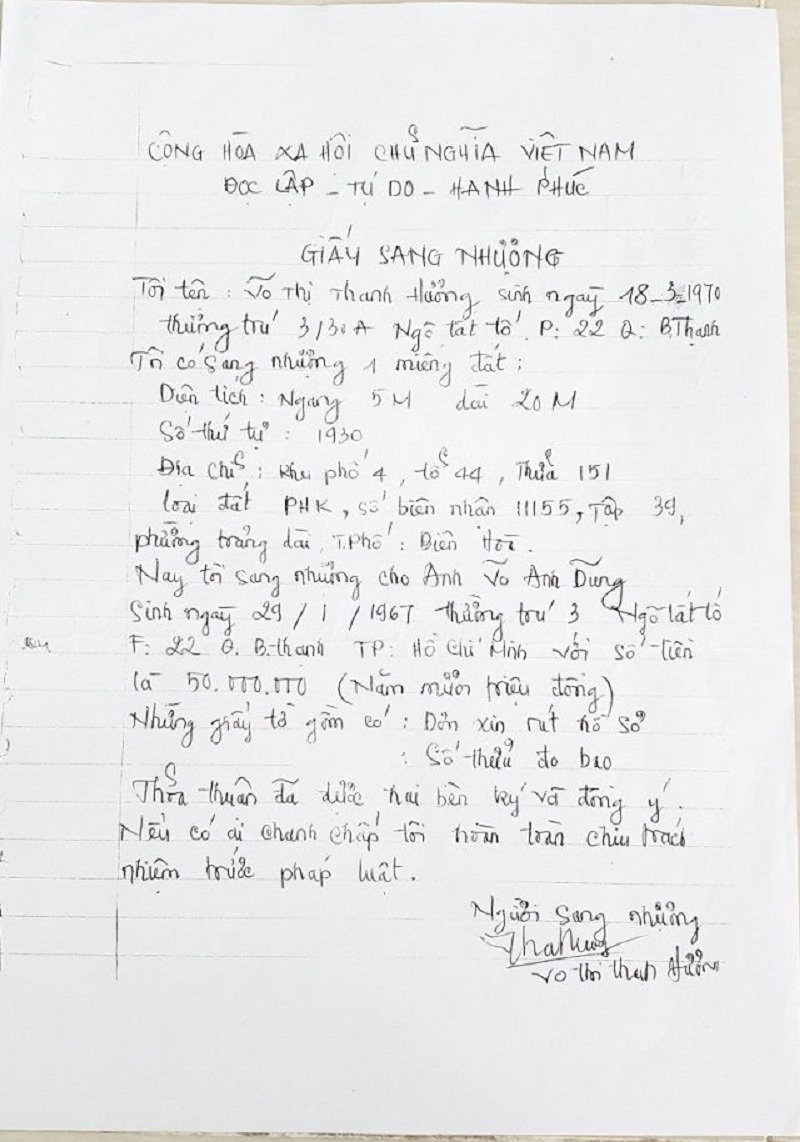 CỘNG HÒA XA HÔI CHỦ NGHĨA VIÊT NAM
ĐỌC LẬP - TỰ DO - HANH PHÚC
GIẤY SANG NHƯỢNG
Tôi tên : Võ Thị Thanh Hưởng sinh ngaỳ 18-3-1970
thường trú 3/30A Ngô tất tố. P: 22 Q: B.Thạnh
Tôi có sang nhượng 1 miếng đất :
Diên tích : Ngang 5M dài 20M
Số thứ tự : 1930
Địa chỉ : khu phố 4, tổ 44, Thửa 151
loại đất PHK, số biên nhân 11155, Tập 39,
phường trảng dài, T.Phố : Biên Hòa.
Nay tôi sang nhường cho Anh Võ Anh Dũng
Sinh ngaỳ 29 / 1 / 1967 thường trú 3 Ngô tất tố
F: 22 Q. B.thanh TP: Hồ Chí Minh với số tiền
là 50.000.000 (Năm mươi triệu đồng)
Những giấy tờ gồm có : Đơn xin rút hồ sơ
: Số thửa đo bao
Thỏa thuân đã được hai bên ký và đồng ý.
Nếu có ai chanh chấp tôi hoàn toàn chiu trách
nhiệm trước pháp luật.
Người sang nhượng
Vo thi thanh Hưởng